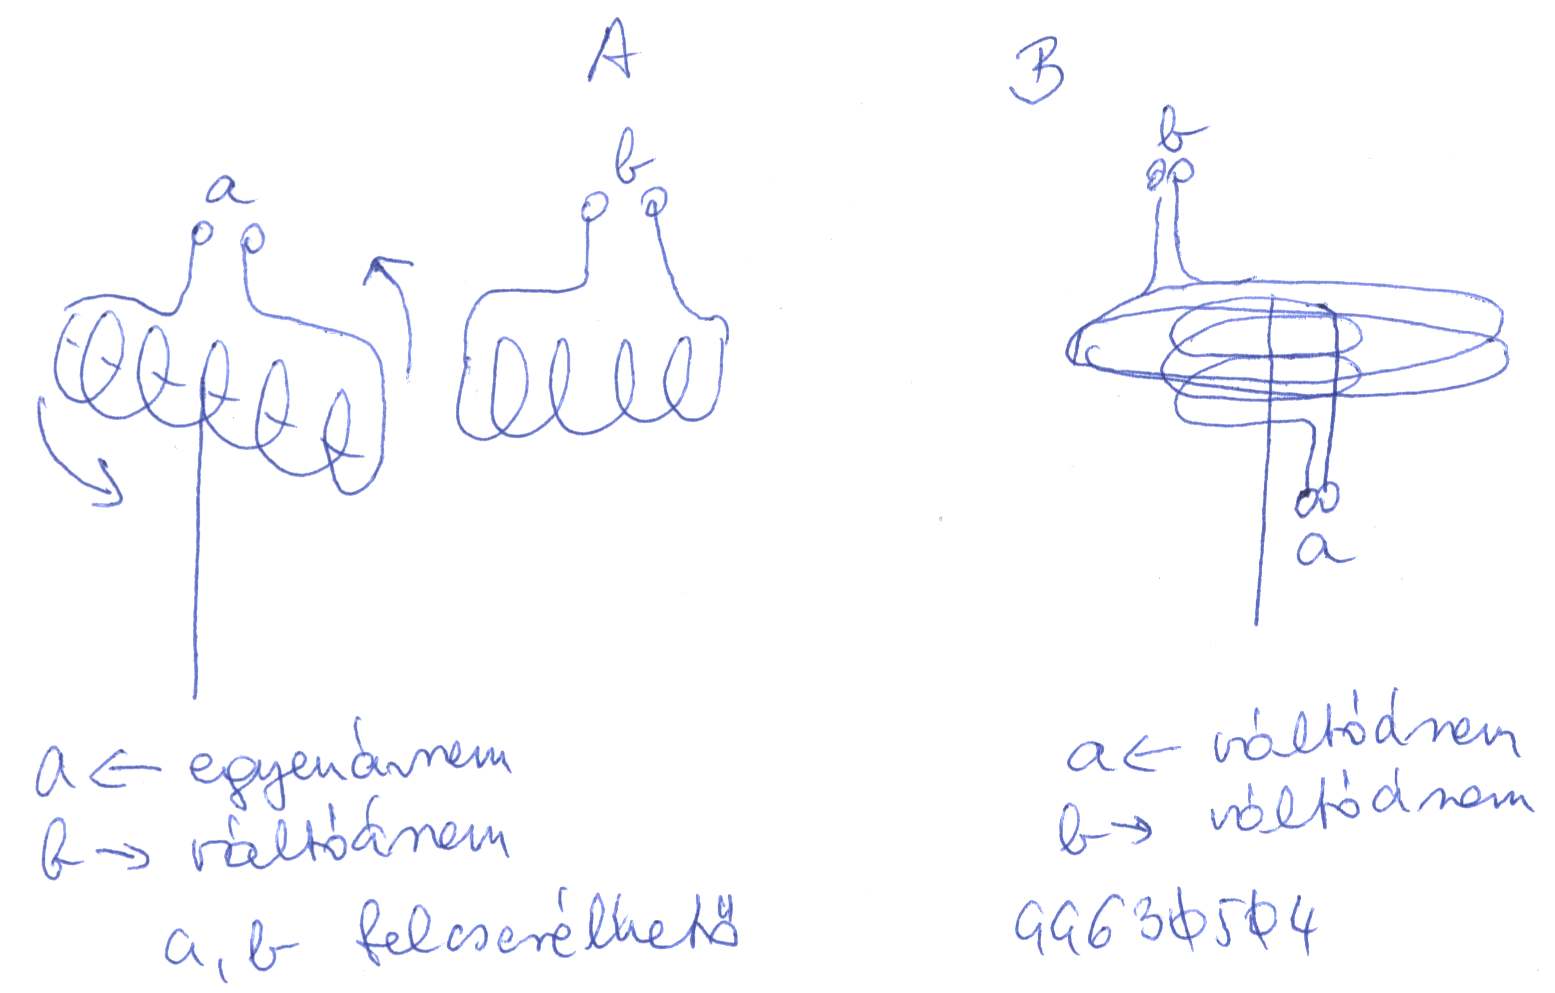 A
B
a
b
b
a
a ← egyenáram
b → váltóáram
a, b felcserélhető
a ← váltóáram
b → váltóáram
99630504